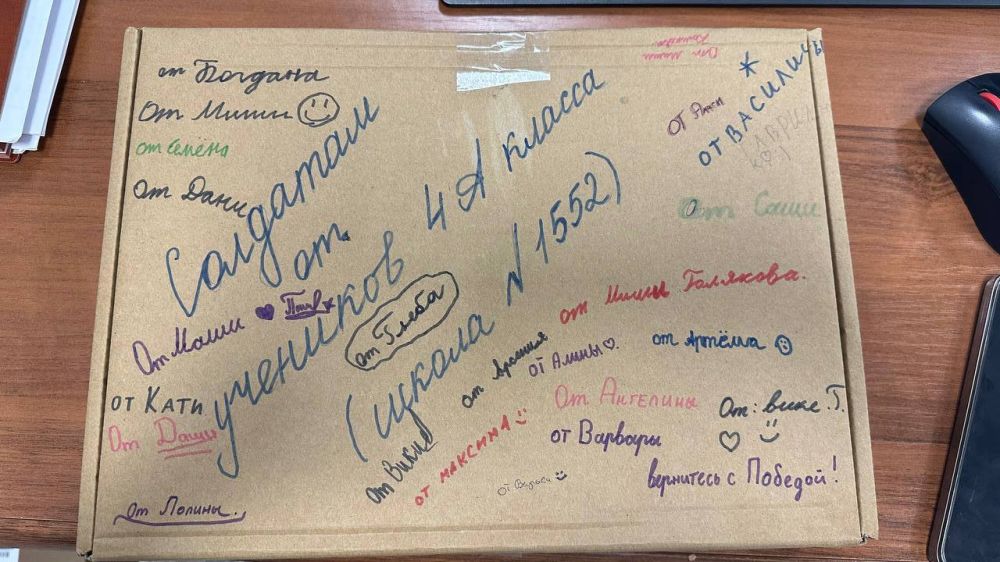 от Богдана
От Миши
от Семёна
От Дани
Солдатам
от
учеников 4 А класса
(школа N 1552)
От Маши
от Глеба
от Кати
От Даши
От Полины.
от Вики
от Максима
от Арсения
от Алины
от Миши Голякова.
от Артёма
От Ангелины
От: вике Г.
от Варвары
вернитесь с Победой!
От Саши
от Василисы
От Маши